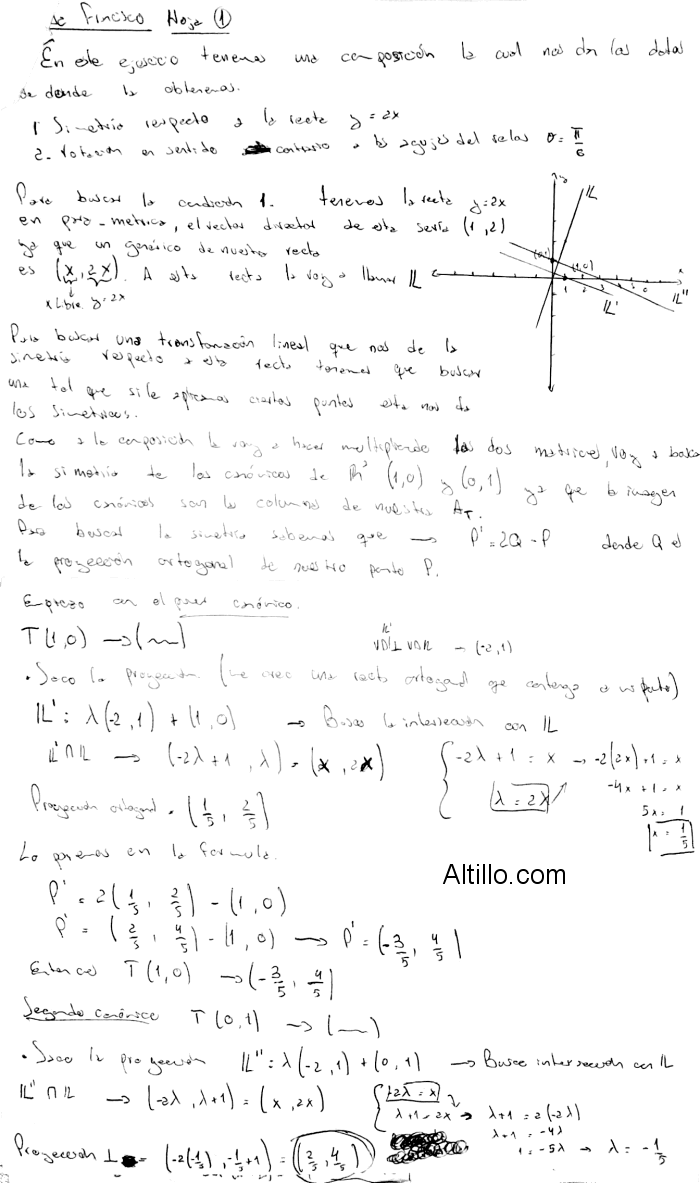 de Fincisco Hoja ①
En este ejercicio tenemos una composición la cual nos dn los datos
de donde la obtenemos.
1 Simetría respecto a la recta y = 2x
2- rotación en sentido contrario a las agujas del reloj θ = π/6
Para buscar la condición 1. tenemos la recta y=2x
en para-metrica, el vector director de esta sería (1,2)
ya que un genérico de nuestra recta
es (x, 2x). A esta recta la voy a llamar IL
x Libre y=2x
y
IL
(0,1)
(1,0)
x
IL'
IL''
Para buscar una transformación lineal que nos de la
simetría respecto a esta recta tenemos que buscar
una tal que si le aplicamos ciertos puntos esta nos da
los simetricos.
Como a la composición la voy a hacer multiplicando las dos matrices, voy a buscar
la simetria de los canónicos de (1,0) y (0,1) ya que la imagen
de los canónicos son las columnas de nuestra A_T.
Para buscar la simetria sabemos que → P' = 2Q - P donde Q es
la proyección ortogonal de nuestro punto P.
Empiezo con el primer canónico.
T(1,0) → ( )
VD IL' ⊥ VD IL → (-2,1)
• Saco la proyección (me creo una recta ortogonal que contenga a mi punto)
IL': λ(-2,1) + (1,0) → Busco la intersección con IL
IL' ∩ IL → (-2λ+1, λ) = (x, 2x)
{ -2λ + 1 = x → -2(2x)+1 = x
λ = 2x
-4x + 1 = x
5x = 1
x = 1/5
Proyección ortogonal = (1/5, 2/5)
Lo ponemos en la formula.
P' = 2(1/5, 2/5) - (1,0)
P' = (2/5, 4/5) - (1,0) → P' = (-3/5, 4/5)
Altillo.com
Entonces T(1,0) → (-3/5, 4/5)
Segundo canónico T(0,1) → ( )
• Saco la proyección IL'' = λ(-2,1) + (0,1) → Busco interseccion con IL
IL'' ∩ IL → (-2λ, λ+1) = (x, 2x)
{ -2λ = x
λ+1 = 2x → λ+1 = 2(-2λ)
λ+1 = -4λ
1 = -5λ → λ = -1/5
Proyección ⊥ = (-2(-1/5), -1/5+1) = (2/5, 4/5)